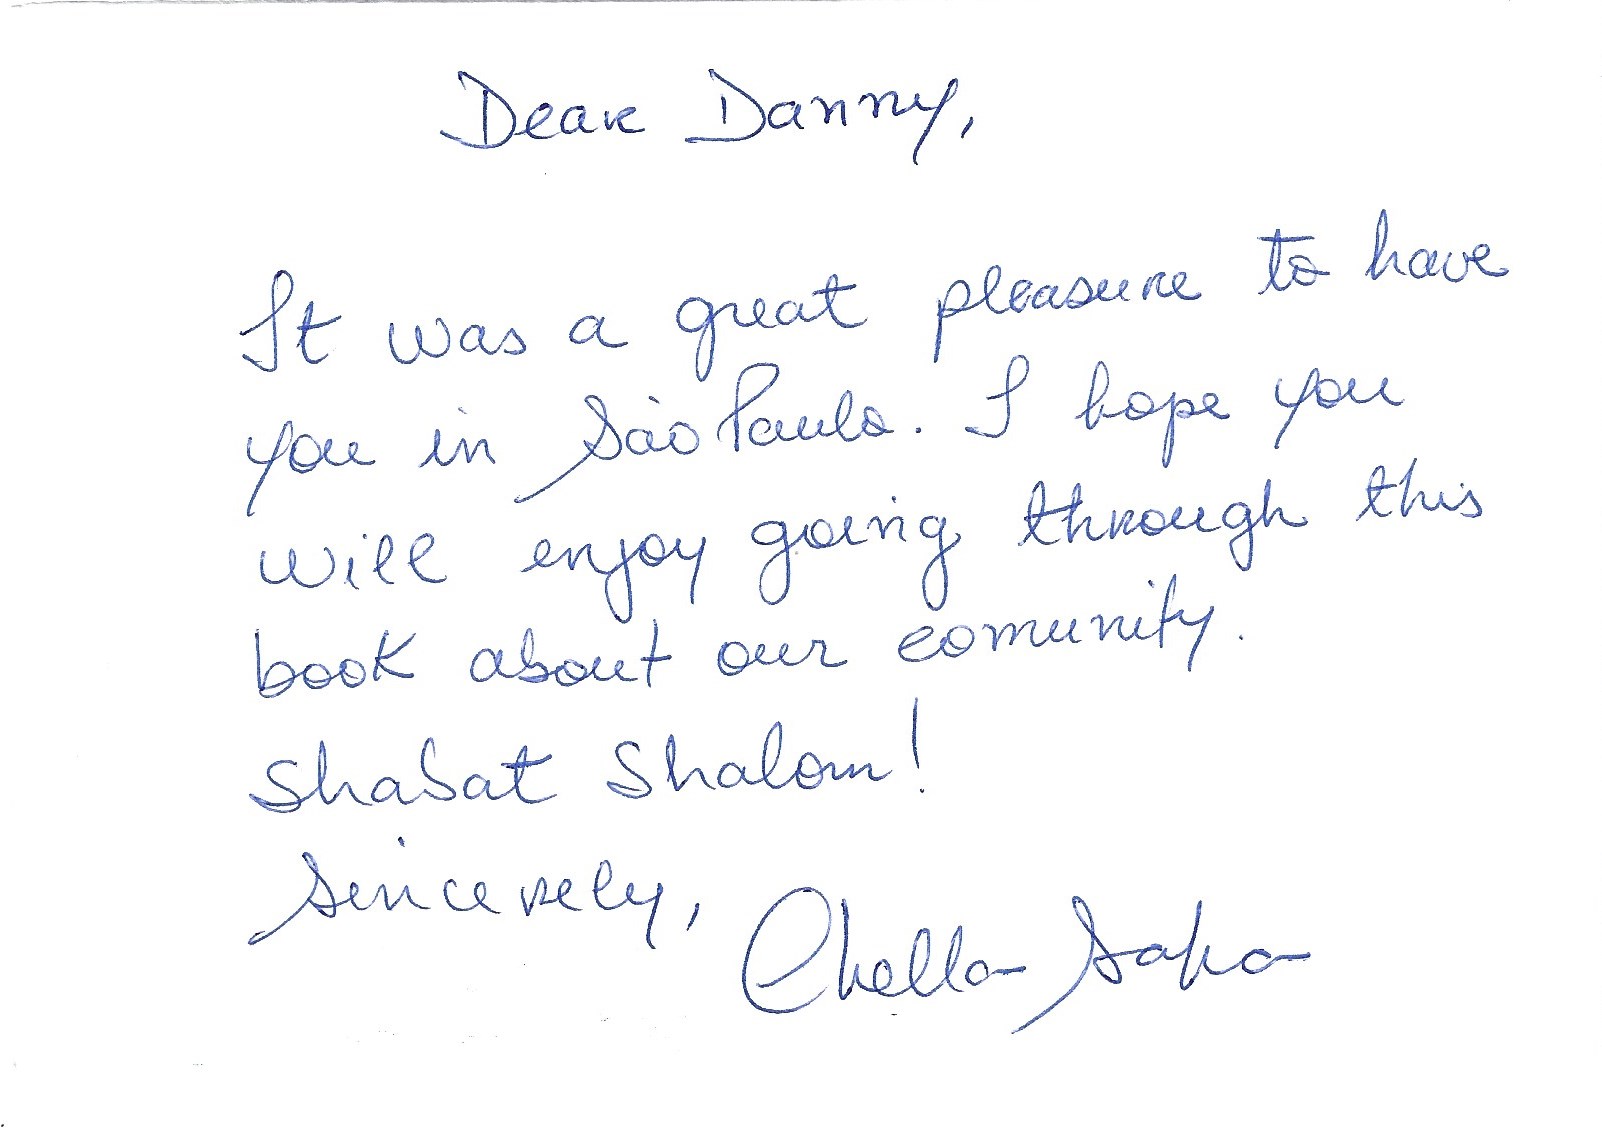 Dear Danny,
It was a great pleasure to have
you in São Paulo. I hope you
will enjoy going through this
book about our comunity.
Shabat Shalom!
Sincerely,
Chella Safra